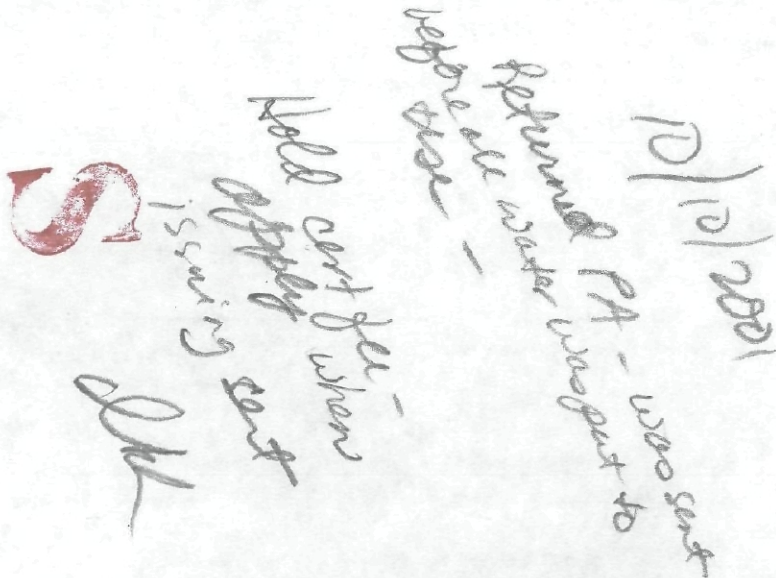 10/10/2001
Returned PA - was sent
before all water was put to
use -
Hold cert fee -
apply when
issuing cert
S